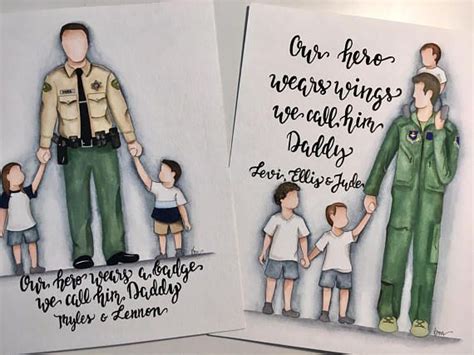 Our hero wears a badge
we call him Daddy
Myles & Lennon
Our hero
wears wings
we call him
Daddy
Levi, Ellis & Jude